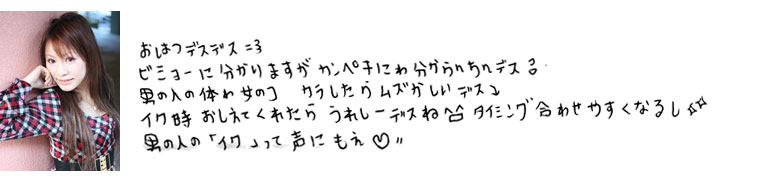 おはつデスデス=3
ビミョーに分かりますが カンペキにわ分からnちnデス
男の人の体わ女のコ カラしたらムズかしいデス
イク時 おしえてくれたら うれしーデスね^^ タイミング合わせやすくなるし
男の人の「イク」って声にもえ♡〃